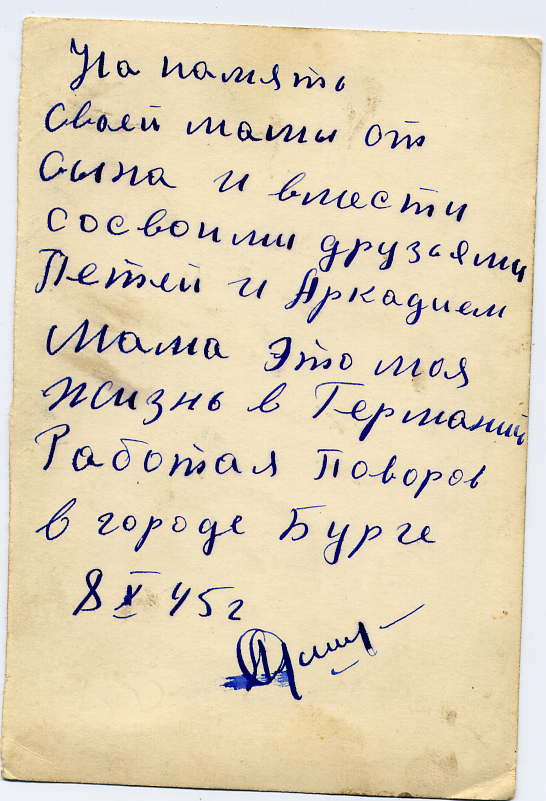 На память
своей мамы от
сына и вмести
сосвоими друзьями
Петей и Аркадием
Мама это моя
жизнь в Германий
Работал Поворов
в городе Бурге
8 X 45 г